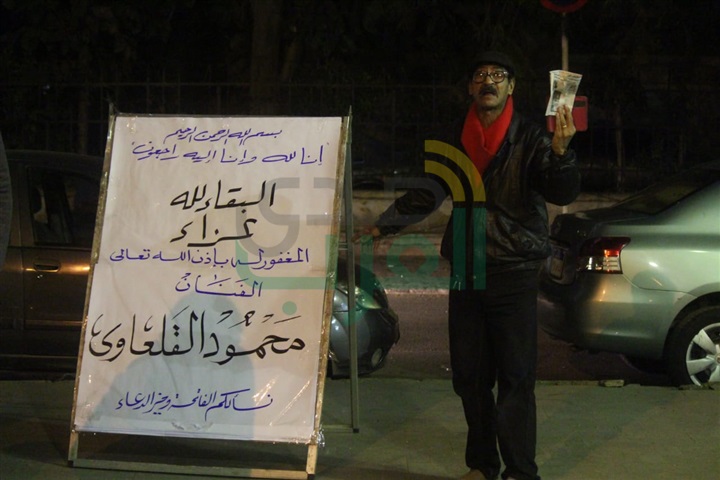 بسم الله الرحمن الرحيم
"إنا لله وإنا إليه راجعون"
البقاء لله
عزاء
المغفور له بإذن الله تعالى
الفنان
محمود القلعاوى
نسألكم الفاتحة وخير الدعاء